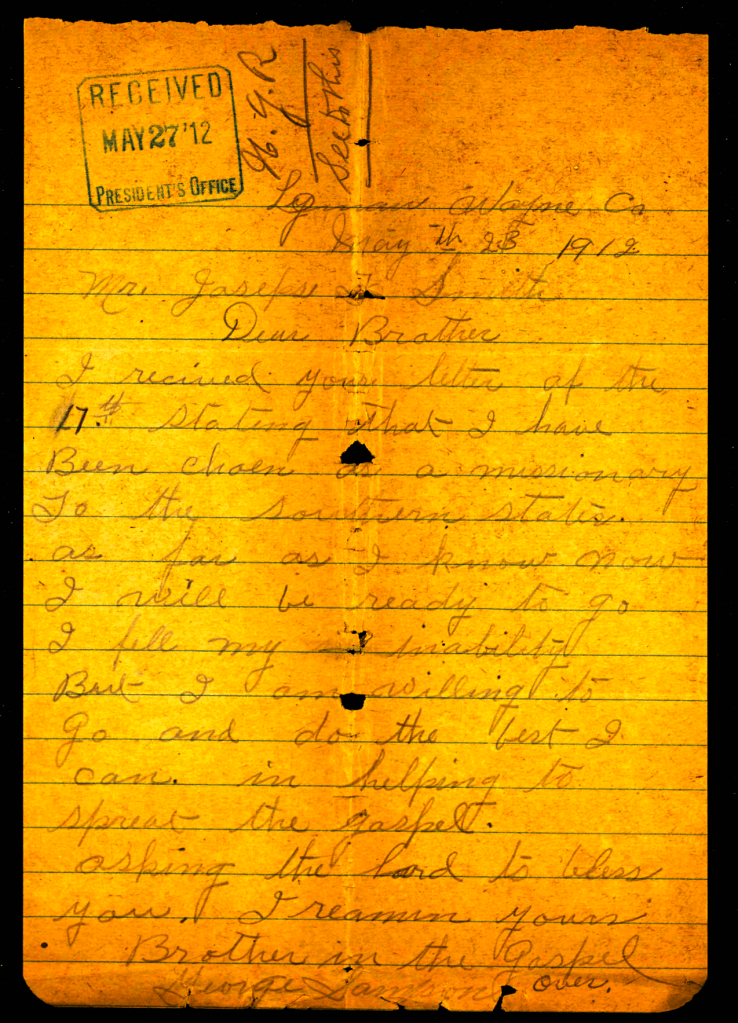 RECEIVED
MAY 27 '12
PRESIDENT'S OFFICE
See to this
Lyman Wayne Co
May th 23 1912
Mr. Joseph F. Smith
Dear Brother
I recived your letter of the
17th stating that I have
Been choen as a missionary
To the southern states.
as far as I know now
I will be ready to go
I fell my inability
But I am willing to
go and do the best I
can. in helping to
spreat the gaspel.
asking the Lord to bless
you. I reamin yours
Brother in the Gaspel
George
over.